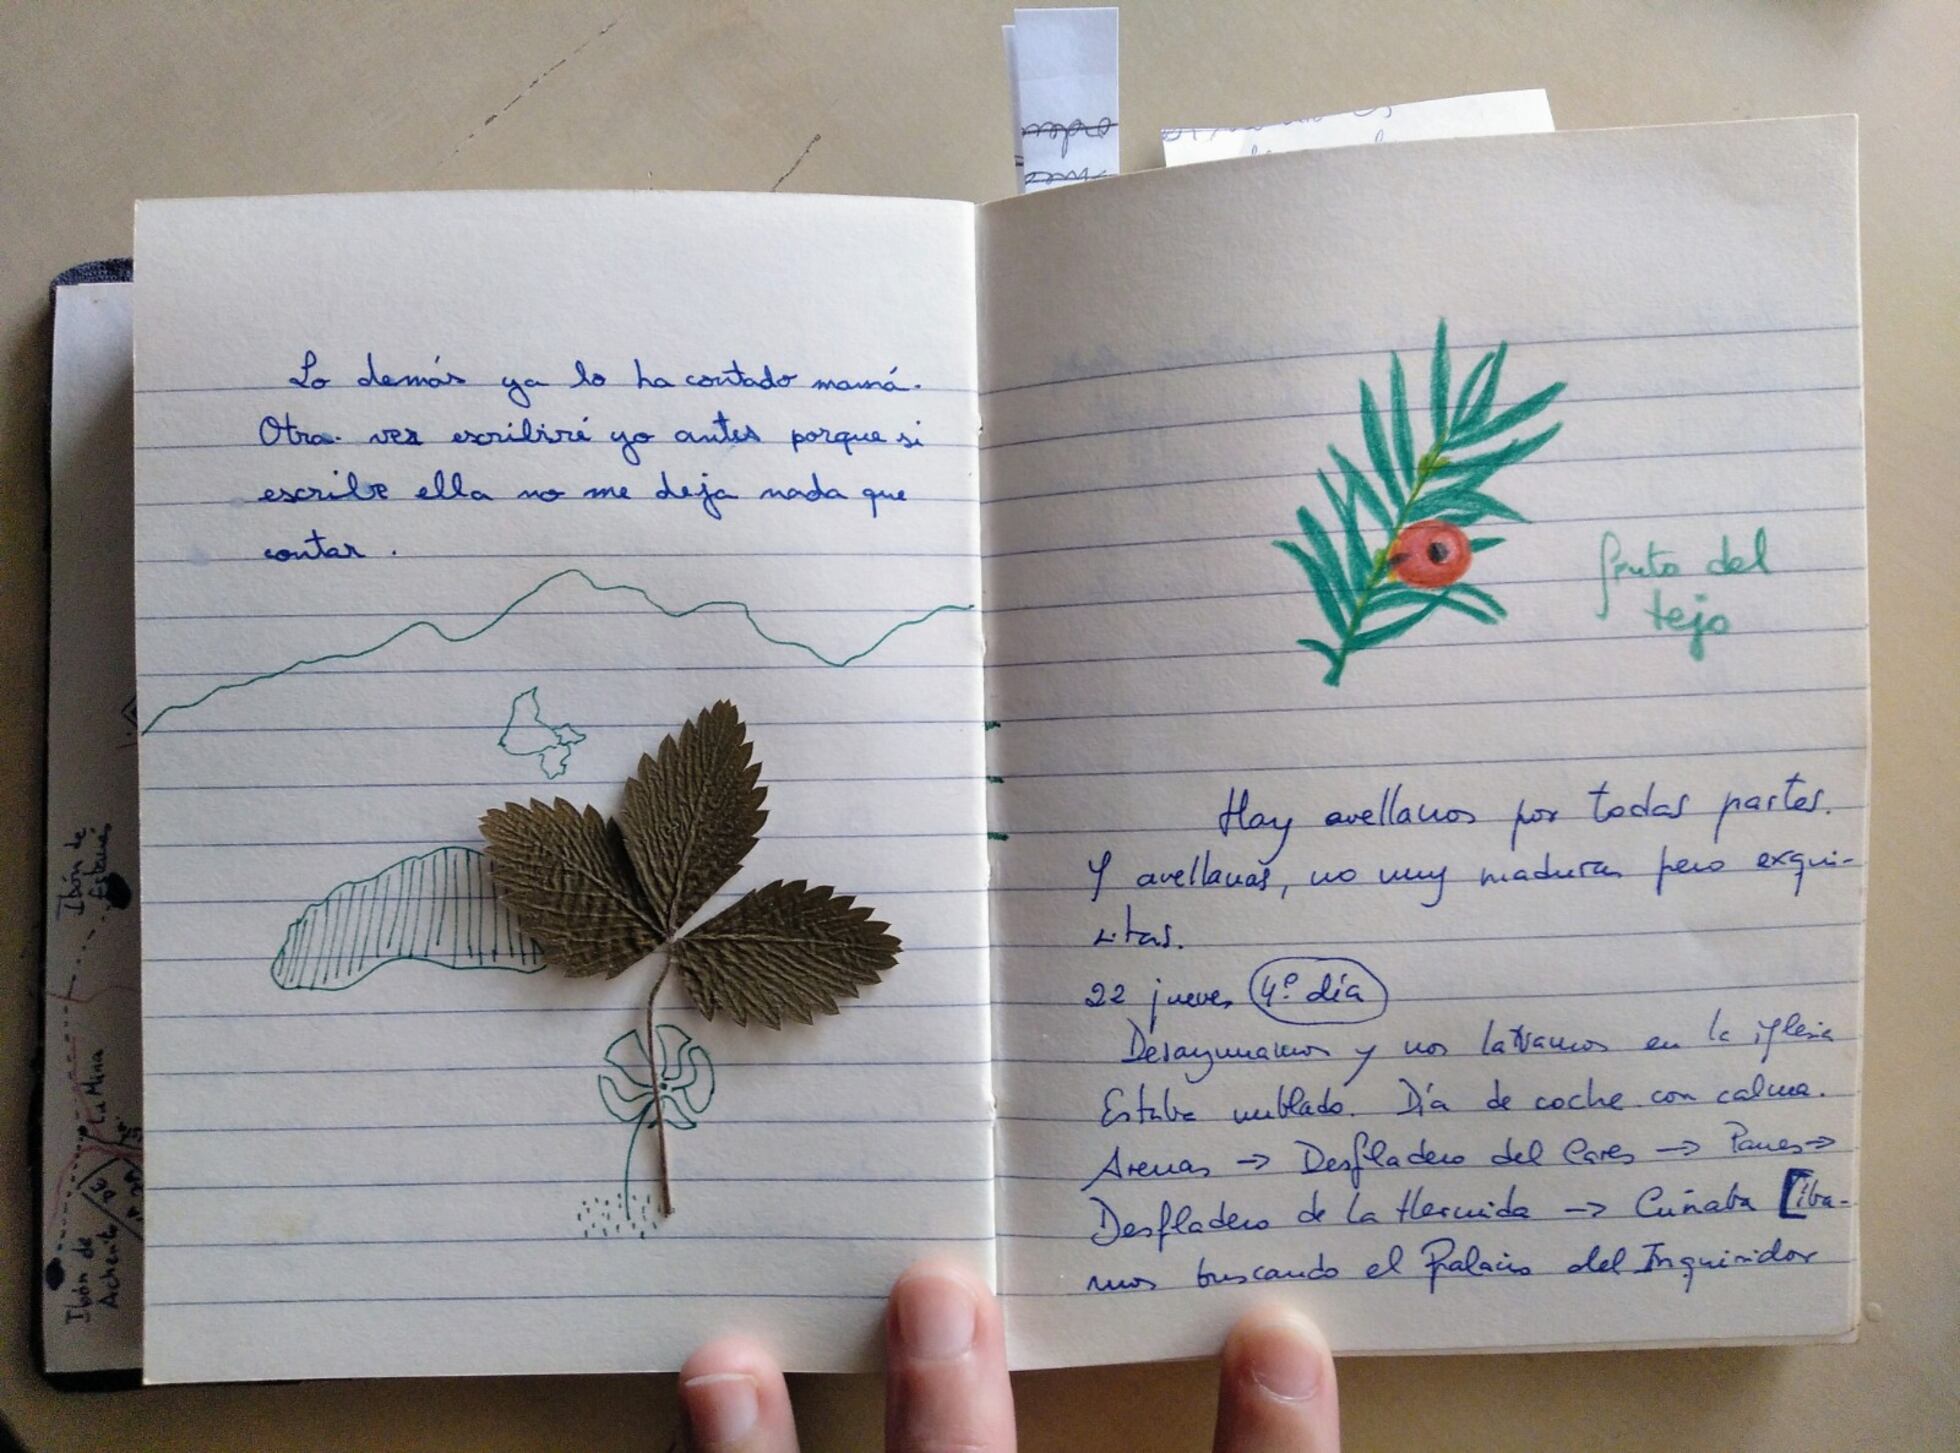 Lo demás ya lo ha contado mamá.
Otra vez escribiré yo antes porque si
escribe ella no me deja nada que
contar.
fruto del
tejo
Hay avellanos por todas partes.
Y avellanas, no muy maduras pero exqui-
sitas.
22 jueves 4º día
Desayunamos y nos lavamos en la iglesia
Estaba nublado. Día de coche con calma.
Arenas → Desfiladero del Cares → Panes →
Desfiladero de La Hermida → Cuñaba [Íba-
mos buscando el Palacio del Inquisidor
Ibón de
Estanés
La Mina
Ibón de
Acherito